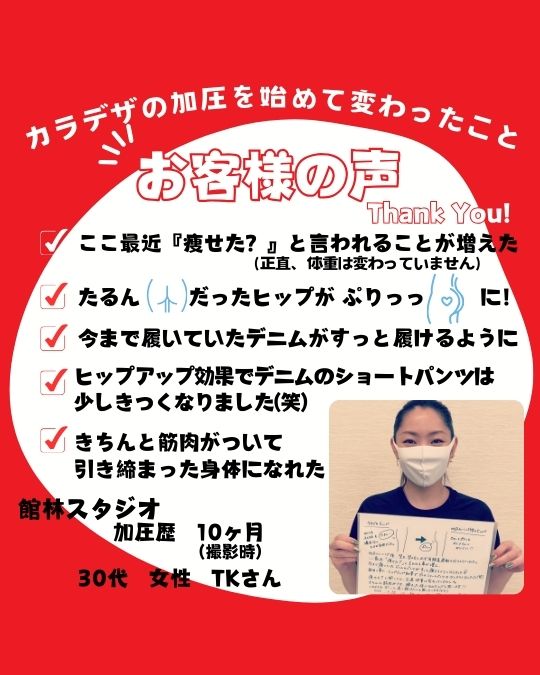 カラデザの加圧を始めて変わったこと
お客様の声
Thank You!
ここ最近『痩せた？』と言われることが増えた
(正直、体重は変わっていません)
たるん だったヒップが ぷりっっ に!
今まで履いていたデニムがすっと履けるように
ヒップアップ効果でデニムのショートパンツは
少しきつくなりました(笑)
きちんと筋肉がついて
引き締まった身体になれた
館林スタジオ
加圧歴 10ヶ月
(撮影時)
30代 女性 TKさん